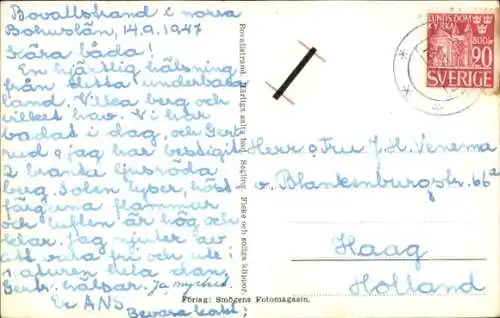 Bovallstrand i norra
Bohuslän, 14.9.1947
Kära båda!
En hjärtlig hälsning
från detta underbara
land. Vilka berg och
vilket hav. Vi har
badat i dag, och Gert-
rud o jag har bestigit
2 branta ljusröda
berg. Solen lyser, höst-
färgerna flammar
och luften är hög och
klar. Jag njuter av
att vara fri och ute i
naturen hela dan.
Gertr. hälsar. Ja mycket.
Er ANS
Bevara kortet!
Bovallstrand. Härliga salta bad. Segling. Fiske och soliga klippor.
Förlag: Smögens Fotomagasin.
LUNDS DOM
KYRKA
800
20
SVERIGE
Herr o Fru J.H. Venema
v. Blankenburgstr. 66a
Haag
Holland